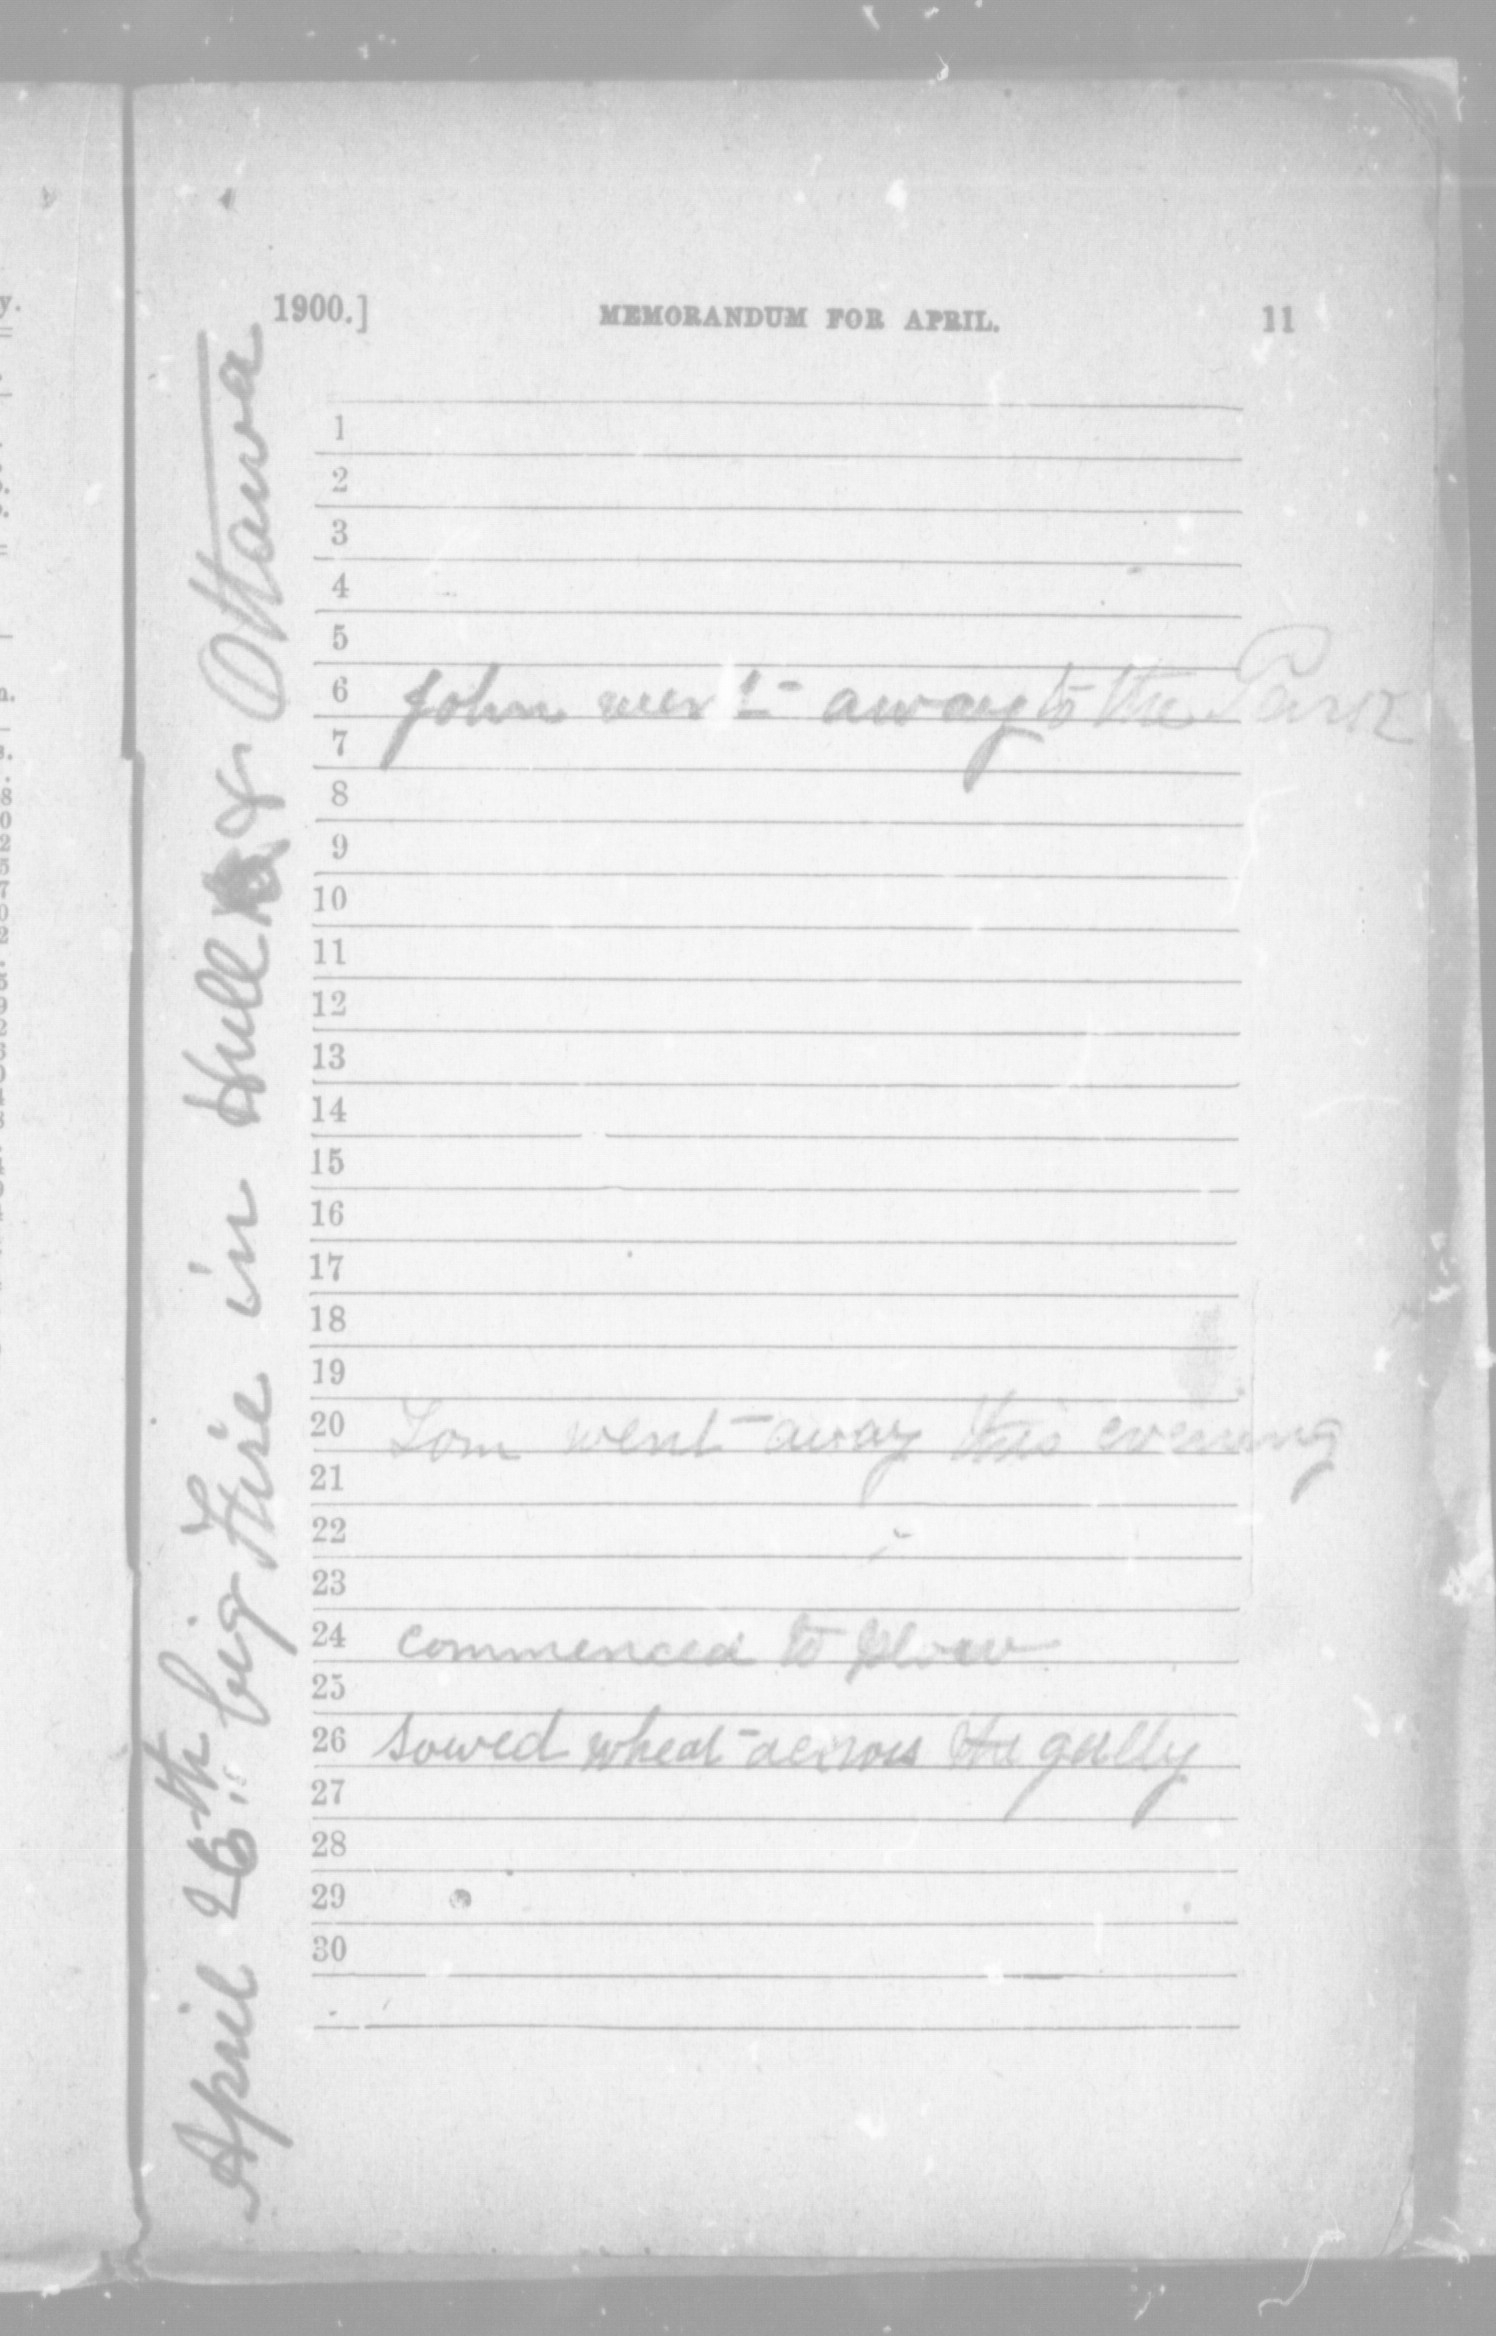 1900.] MEMORANDUM FOR APRIL. 11
1
2
3
4
5
6 John went away to the Park
7
8
9
10
11
12
13
14
15
16
17
18
19
20 Tom went away this evening
21
22
23
24 commenced to plow
25
26 sowed wheat across the gully
27
28
29
30
April 26th big Fire in Hull & Ottawa